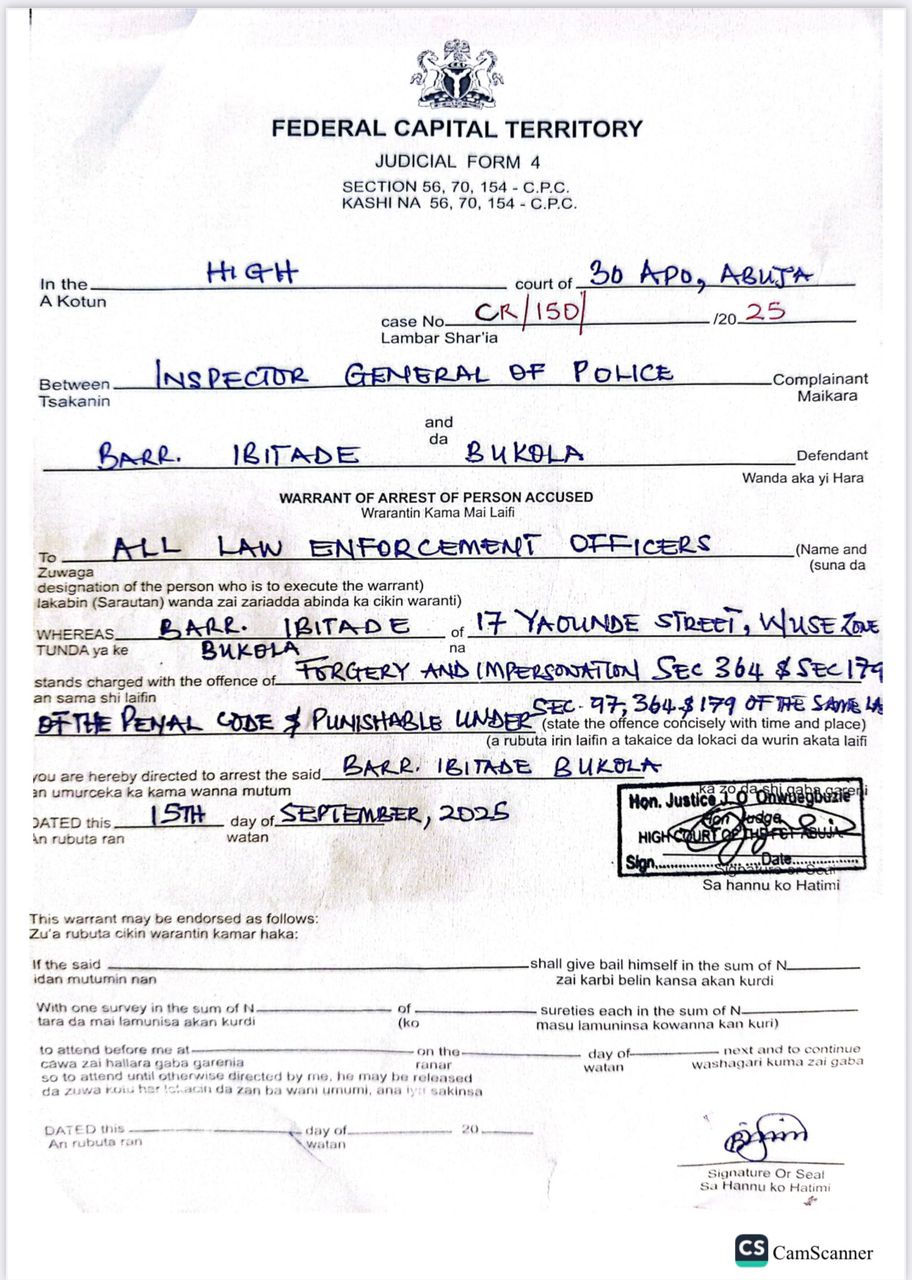 FEDERAL CAPITAL TERRITORY
JUDICIAL FORM 4
SECTION 56, 70, 154 - C.P.C.
KASHI NA 56, 70, 154 - C.P.C.
In the HIGH court of 30 APO, ABUJA
A Kotun
case No. CR/150/ /20 25
Lambar Shar'ia
Between INSPECTOR GENERAL OF POLICE Complainant
Tsakanin Maikara
and
da
BARR. IBITADE BUKOLA Defendant
Wanda aka yi Hara
WARRANT OF ARREST OF PERSON ACCUSED
Wrarantin Kama Mai Laifi
To ALL LAW ENFORCEMENT OFFICERS (Name and
Zuwaga (suna da
designation of the person who is to execute the warrant)
lakabin (Sarautan) wanda zai zariadda abinda ka cikin waranti)
WHEREAS BARR. IBITADE of 17 YAOUNDE STREET, WUSE ZONE
TUNDA ya ke BUKOLA na
stands charged with the offence of FORGERY AND IMPERSONATION SEC 364 & SEC 179
an sama shi laifin
OF THE PENAL CODE & PUNISHABLE UNDER SEC. 97, 364 & 179 OF THE SAME LA
(state the offence concisely with time and place)
(a rubuta irin laifin a takaice da lokaci da wurin akata laifi
you are hereby directed to arrest the said BARR. IBITADE BUKOLA
an umurceka ka kama wanna mutum ka zo da shi gaba gareni
DATED this 15TH day of SEPTEMBER, 2025
An rubuta ran watan
Hon. Justice J. O Onwuegbuzie
Hon Judge
HIGH COURT OF THE FCT ABUJA
Sign............ Date............
Signature or Seal
Sa hannu ko Hatimi
This warrant may be endorsed as follows:
Zu'a rubuta cikin warantin kamar haka:
If the said shall give bail himself in the sum of N
idan mutumin nan zai karbi belin kansa akan kurdi
With one survey in the sum of N of sureties each in the sum of N
tara da mai lamunisa akan kurdi (ko masu lamuninsa kowanna kan kuri)
to attend before me at on the day of next and to continue
cawa zai hallara gaba garenia ranar watan washagari kuma zai gaba
so to attend until otherwise directed by me, he may be released
da zuwa har da zan ba wani umumi, ana iya sakinsa
DATED this day of 20
An rubuta ran watan
Signature Or Seal
Sa Hannu ko Hatimi
CS CamScanner